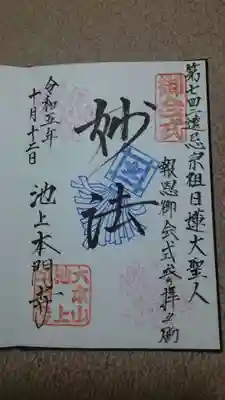 第七四二遠忌宗祖日蓮大聖人
報恩御会式参拝之砌
妙法
令和五年
十月十二日
池上本門寺
大本山
池上